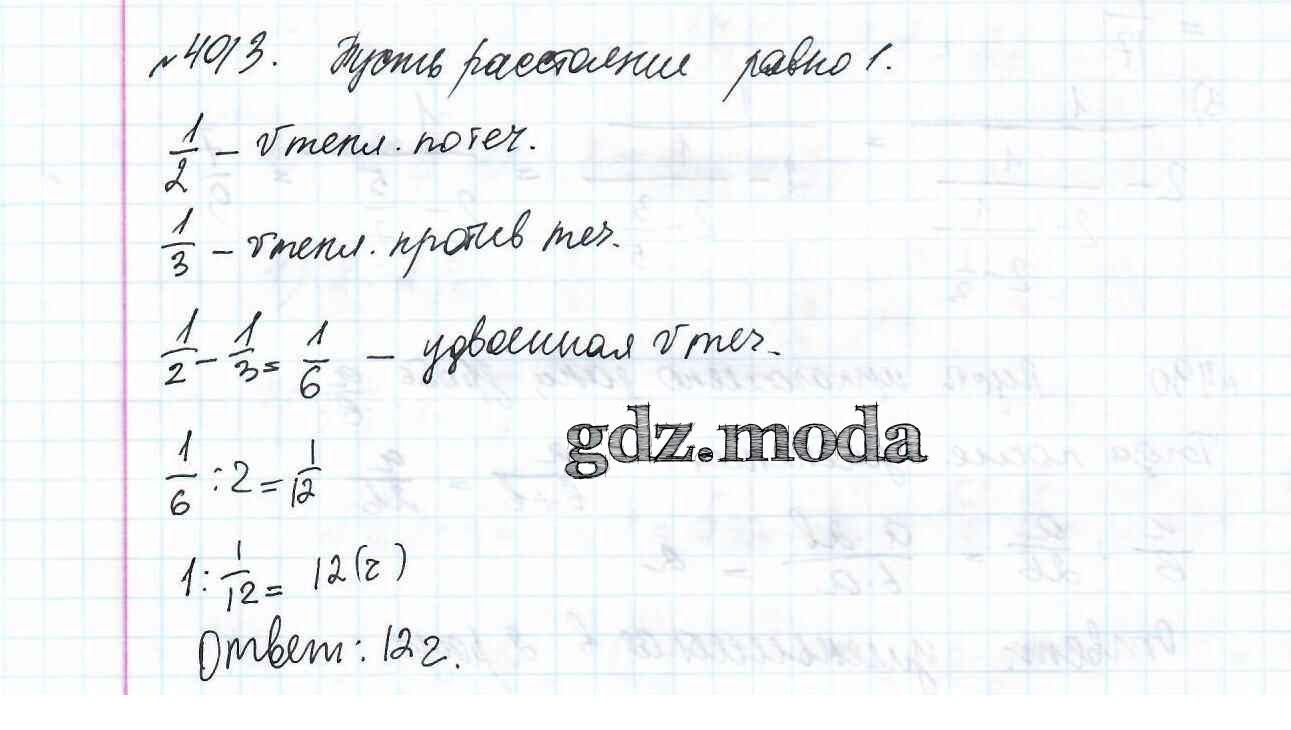 №4013. Пусть расстояние равно 1.
1/2 – v тепл. по теч.
1/3 – v тепл. против теч.
1/2 – 1/3 = 1/6 – удвоенная v теч.
gdz.moda
1/6 : 2 = 1/12
1 : 1/12 = 12 (ч)
Ответ: 12 ч.